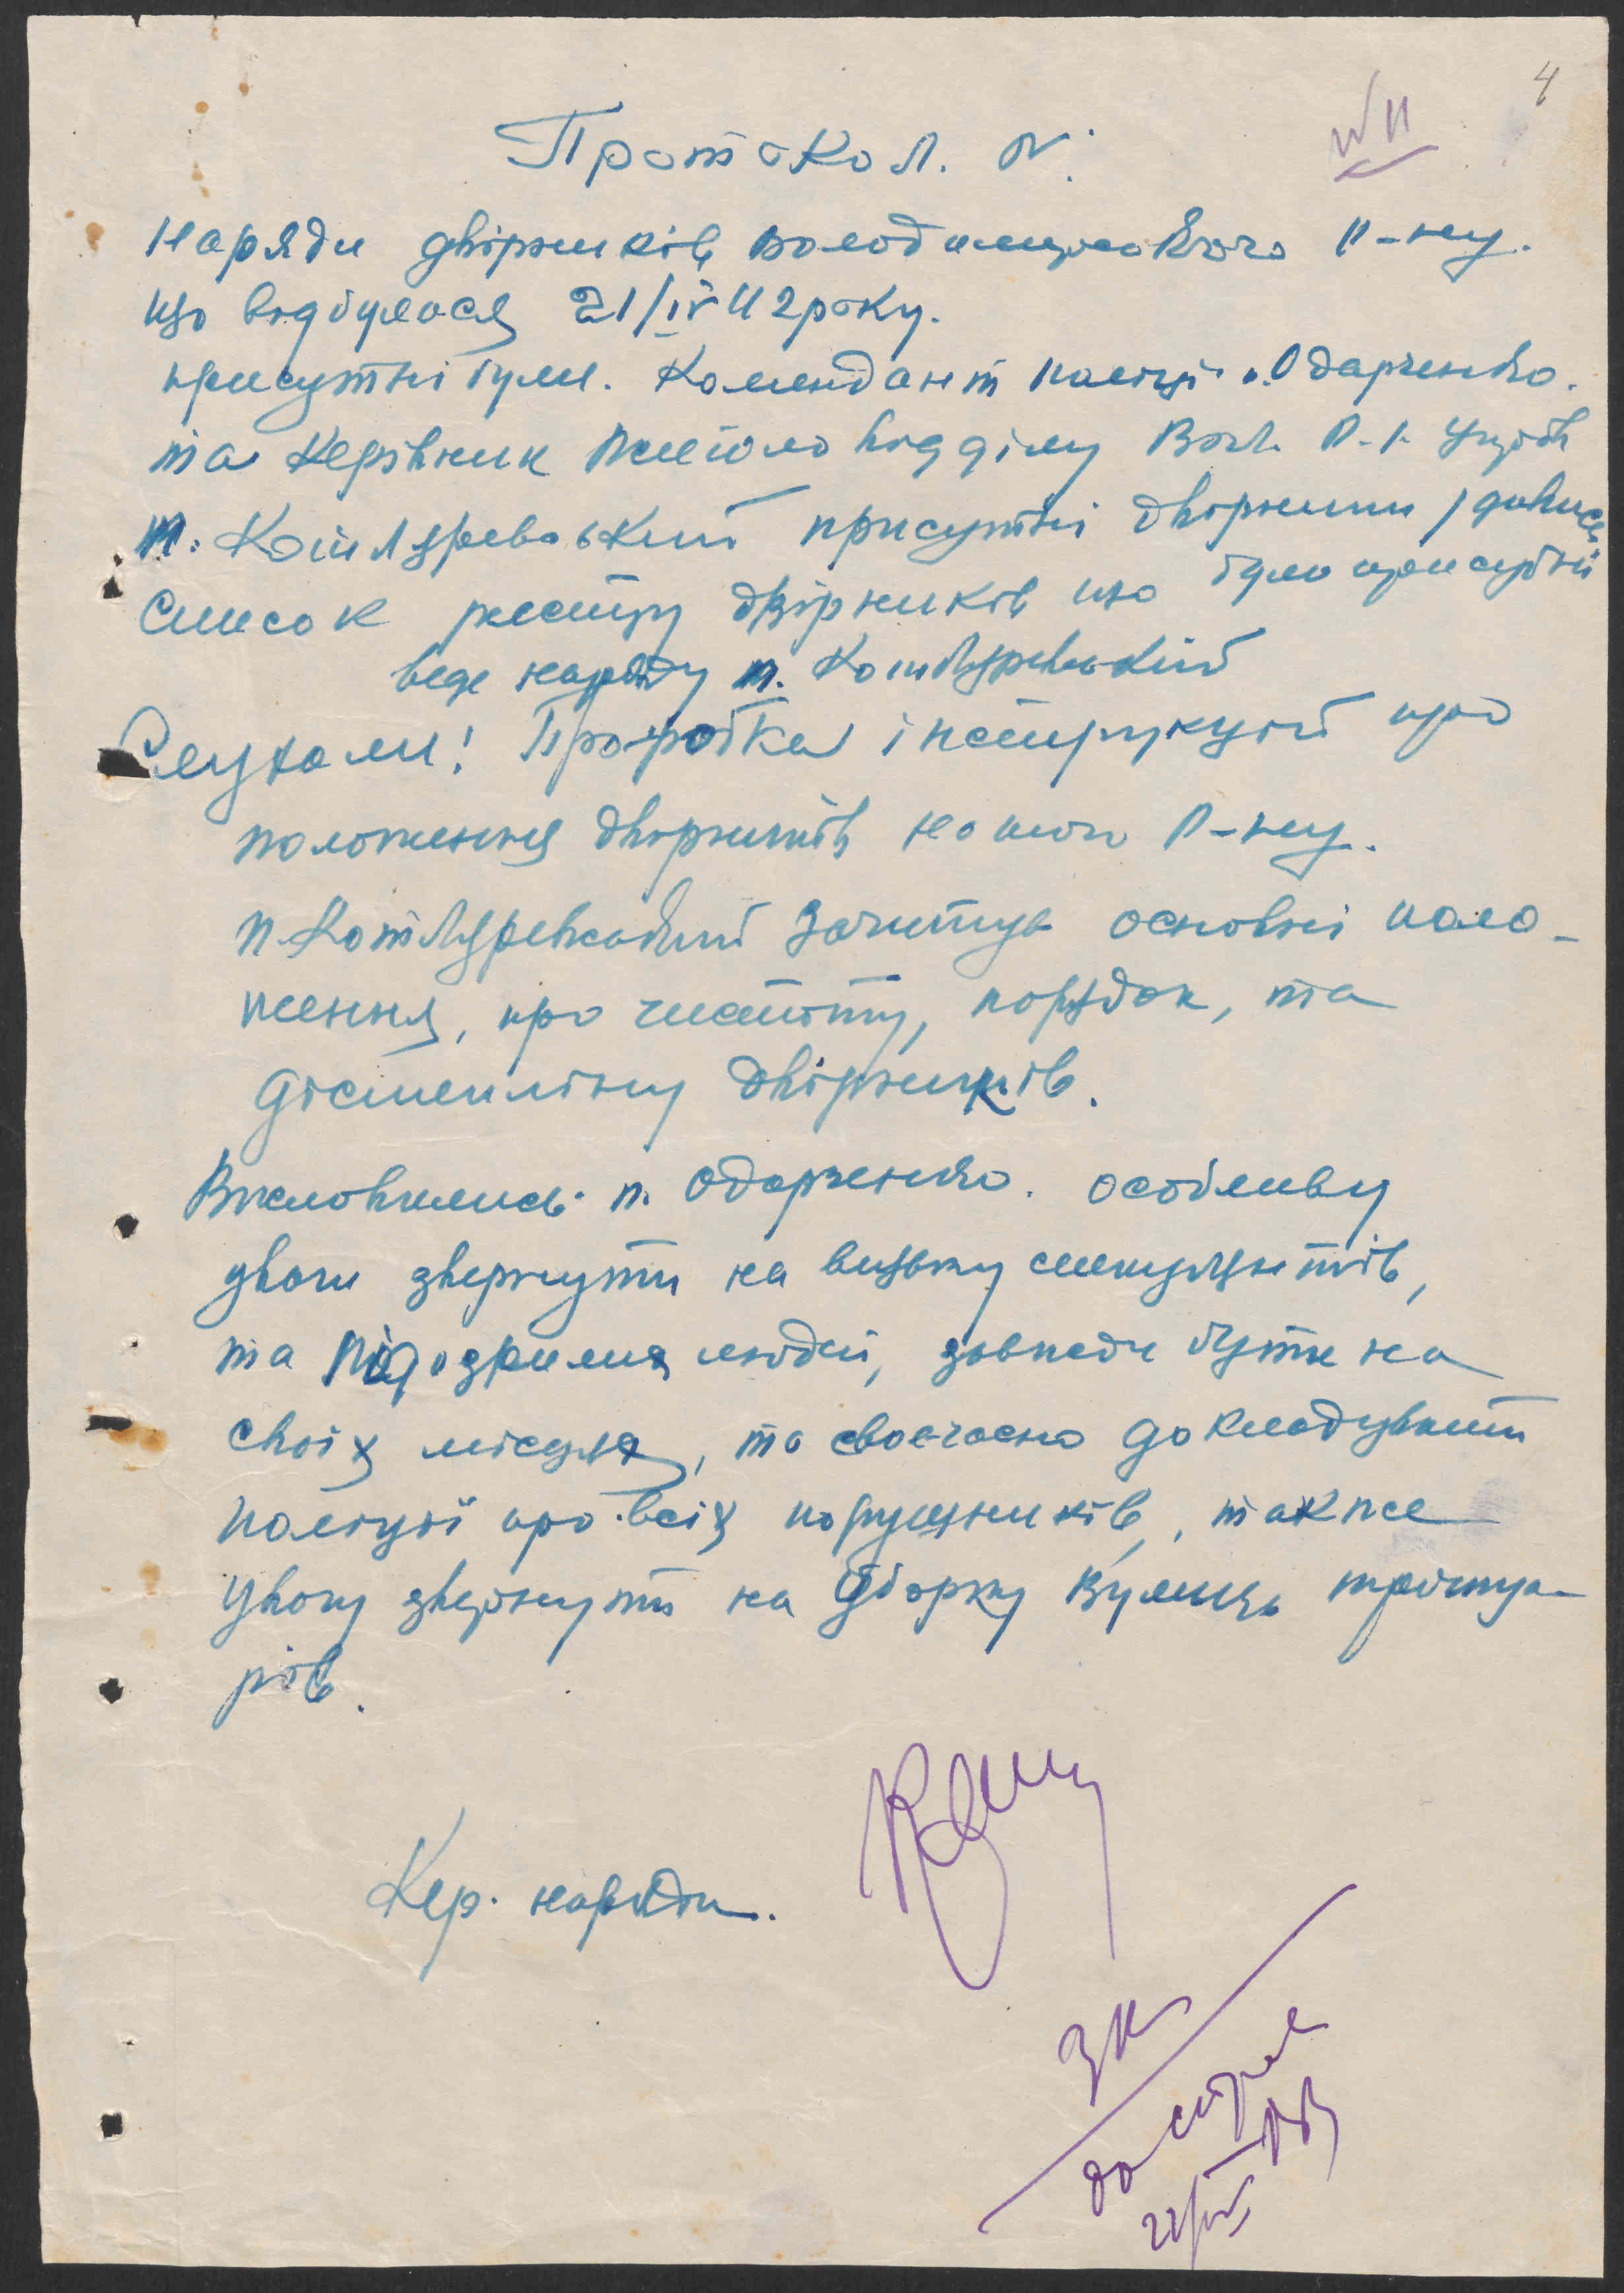 4
Протокол. N.
Наряди двірників Володимирського Р-ну.
що відбулася 21/IV 42 року.
присутні були. Комендант поліції п. Одарченко.
та Керівник Житлово відділу Вол. Р.
п. присутні двірники
Список реєстру двірників що було присутні
веде наряду п.
Слухали! Проробка інструкції про
положення двірників нашого Р-ну.
п. зачитує основні поло-
ження, про чистоту, порядок, та
дісціпліну двірників.
Висловились п. Одарченко. особливу
уваги звернути на спекулянтів,
та підозрилих людей, завжди бути на
своїх місцях, та своєчасно докладувати
поліції про всіх порушників, також
увагу звернути на уборку вулиць тротуа-
рів.
Кер. наряди.